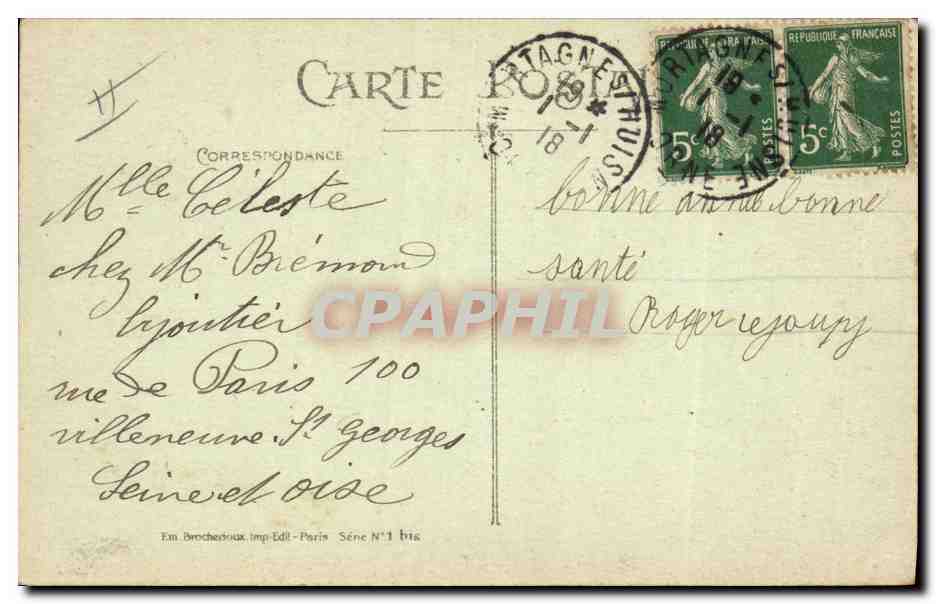 CARTE POSTALE
CORRESPONDANCE
Mlle Céleste
chez Mr Brémond
bijoutier
rue de Paris 100
villeneuve St georges
Seine et oise
Em. Brocherioux. Imp-Edit - Paris Série N° 1 bis
MORTAGNE S/ HUISNE
19 *
1 -1
18
REPUBLIQUE FRANÇAISE
5c
POSTES
MORTAGNE S/ HUISNE
ORNE
19 *
1 -1
18
REPUBLIQUE FRANÇAISE
5c
POSTES
bonne année bonne
santé
Roger
CPAPHIL